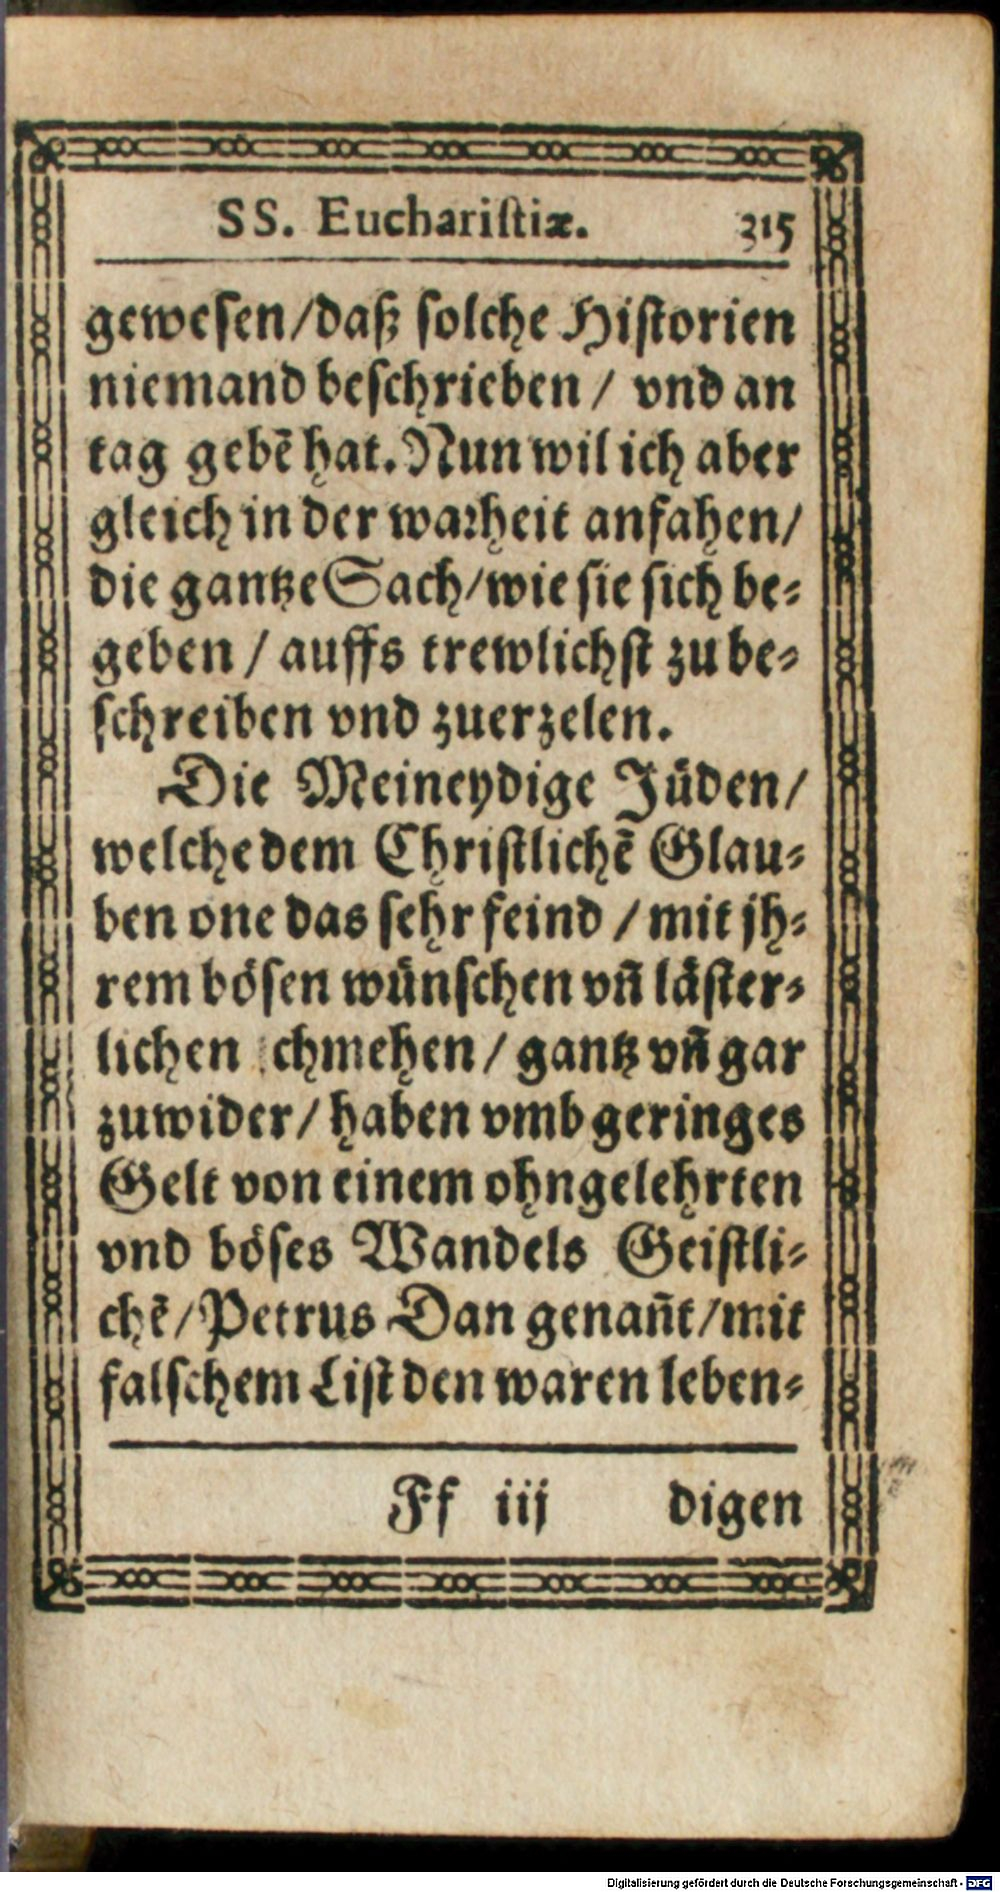 SS. Euchariſtiæ. 315
geweſen/daß ſolche Hiſtorien
niemand beſchrieben / vnd an
tag gebẽ hat. Nun wil ich aber
gleich in der warheit anfahen/
die gantze Sach/wie ſie ſich be-
geben / auffs trewlichſt zu be-
ſchreiben vnd zuerzelen.
Die Meineydige Jüden/
welche dem Chriſtlichẽ Glau-
ben one das ſehr feind / mit jh-
rem böſen wünſchen vñ läſter-
lichen chmehen / gantz vñ gar
zuwider/ haben vmb geringes
Gelt von einem ohngelehrten
vnd böſes Wandels Geiſtli-
chẽ/Petrus Dan genañt/mit
falſchem Liſt den waren leben-
Ff iij digen
Digitalisierung gefördert durch die Deutsche Forschungsgemeinschaft - DFG